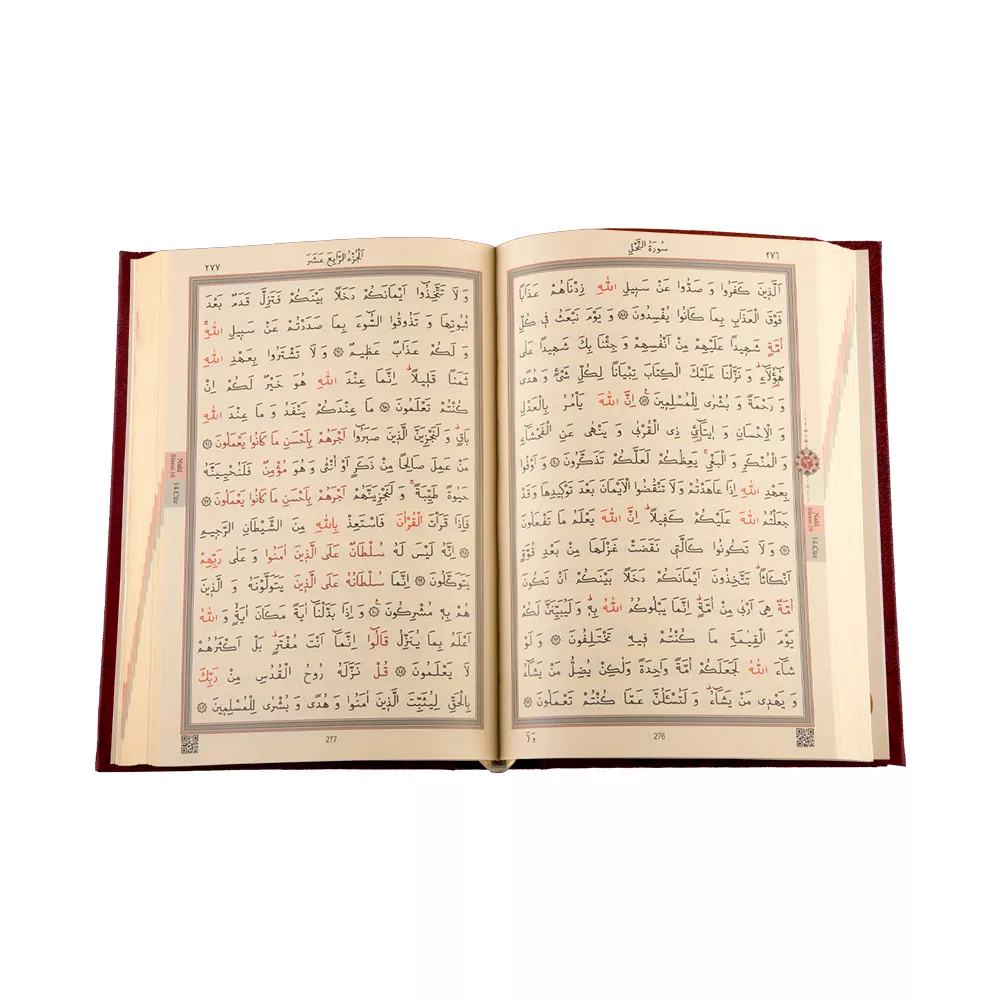 سُورَةُ النَّحْلِ
٢٧٦
اَلَّذٖينَ كَفَرُوا وَ صَدُّوا عَنْ سَبٖيلِ اللّٰهِ زِدْنَاهُمْ عَذَاباً
فَوْقَ الْعَذَابِ بِمَا كَانُوا يُفْسِدُونَ ﴿٨٨﴾ وَ يَوْمَ نَبْعَثُ فٖي كُلِّ
اُمَّةٍ شَهٖيداً عَلَيْهِمْ مِنْ اَنْفُسِهِمْ وَ جِئْنَا بِكَ شَهٖيداً عَلٰى
هٰٓؤُلَٓاءِؕ وَ نَزَّلْنَا عَلَيْكَ الْكِتَابَ تِبْيَاناً لِكُلِّ شَیْءٍ وَ هُدًى
وَ رَحْمَةً وَ بُشْرٰى لِلْمُسْلِمٖينَ ﴿٨٩﴾ اِنَّ اللّٰهَ يَاْمُرُ بِالْعَدْلِ
وَ الْاِحْسَانِ وَ اٖيتَٓائِ ذِی الْقُرْبٰى وَ يَنْهٰى عَنِ الْفَحْشَٓاءِ
وَ الْمُنْكَرِ وَ الْبَغْیِۚ يَعِظُكُمْ لَعَلَّكُمْ تَذَكَّرُونَ ﴿٩٠﴾ وَ اَوْفُوا
بِعَهْدِ اللّٰهِ اِذَا عَاهَدْتُمْ وَ لَا تَنْقُضُوا الْاَيْمَانَ بَعْدَ تَوْكٖيدِهَا وَ قَدْ
جَعَلْتُمُ اللّٰهَ عَلَيْكُمْ كَفٖيلاًؕ اِنَّ اللّٰهَ يَعْلَمُ مَا تَفْعَلُونَ
﴿٩١﴾ وَ لَا تَكُونُوا كَالَّتٖي نَقَضَتْ غَزْلَهَا مِنْ بَعْدِ قُوَّةٍ
اَنْكَاثاًؕ تَتَّخِذُونَ اَيْمَانَكُمْ دَخَلاً بَيْنَكُمْ اَنْ تَكُونَ
اُمَّةٌ هِیَ اَرْبٰى مِنْ اُمَّةٍؕ اِنَّمَا يَبْلُوكُمُ اللّٰهُ بِهٖؕ وَ لَيُبَيِّنَنَّ لَكُمْ
يَوْمَ الْقِيٰمَةِ مَا كُنْتُمْ فٖيهِ تَخْتَلِفُونَ ﴿٩٢﴾ وَ لَوْ
شَٓاءَ اللّٰهُ لَجَعَلَكُمْ اُمَّةً وَاحِدَةً وَلٰكِنْ يُضِلُّ مَنْ يَشَٓاءُ
وَ يَهْدٖي مَنْ يَشَٓاءُؕ وَ لَتُسْـَٔلُنَّ عَمَّا كُنْتُمْ تَعْمَلُونَ ﴿٩٣﴾
276
وَ لَا
Nahl
Sûresi:16
14.Cüz
٢٧٧
اَلْجُزْءُ الرَّابِعَ عَشَرَ
وَ لَا تَتَّخِذُٓوا اَيْمَانَكُمْ دَخَلاً بَيْنَكُمْ فَتَزِلَّ قَدَمٌ بَعْدَ
ثُبُوتِهَا وَ تَذُوقُوا السُّٓوءَ بِمَا صَدَدْتُمْ عَنْ سَبٖيلِ اللّٰهِۚ
وَ لَكُمْ عَذَابٌ عَظٖيمٌ ﴿٩٤﴾ وَ لَا تَشْتَرُوا بِعَهْدِ اللّٰهِ
ثَمَناً قَلٖيلاًؕ اِنَّمَا عِنْدَ اللّٰهِ هُوَ خَيْرٌ لَكُمْ اِنْ
كُنْتُمْ تَعْلَمُونَ ﴿٩٥﴾ مَا عِنْدَكُمْ يَنْفَدُ وَ مَا عِنْدَ اللّٰهِ
بَاقٍؕ وَ لَنَجْزِيَنَّ الَّذٖينَ صَبَرُٓوا اَجْرَهُمْ بِاَحْسَنِ مَا كَانُوا يَعْمَلُونَ ﴿٩٦﴾
مَنْ عَمِلَ صَالِحاً مِنْ ذَكَرٍ اَوْ اُنْثٰى وَ هُوَ مُؤْمِنٌ فَلَنُحْيِيَنَّهُ
حَيٰوةً طَيِّبَةًۚ وَ لَنَجْزِيَنَّهُمْ اَجْرَهُمْ بِاَحْسَنِ مَا كَانُوا يَعْمَلُونَ ﴿٩٧﴾
فَاِذَا قَرَاْتَ الْقُرْاٰنَ فَاسْتَعِذْ بِاللّٰهِ مِنَ الشَّيْطَانِ الرَّجٖيمِ
﴿٩٨﴾ اِنَّهُ لَيْسَ لَهُ سُلْطَانٌ عَلَى الَّذٖينَ اٰمَنُوا وَ عَلٰى رَبِّهِمْ
يَتَوَكَّلُونَ ﴿٩٩﴾ اِنَّمَا سُلْطَانُهُ عَلَى الَّذٖينَ يَتَوَلَّوْنَهُ وَ الَّذٖينَ
هُمْ بِهٖ مُشْرِكُونَ ﴿١٠٠﴾ وَ اِذَا بَدَّلْنَٓا اٰيَةً مَكَانَ اٰيَةٍۙ وَ اللّٰهُ
اَعْلَمُ بِمَا يُنَزِّلُ قَالُٓوا اِنَّمَٓا اَنْتَ مُفْتَرٍؕ بَلْ اَكْثَرُهُمْ
لَا يَعْلَمُونَ ﴿١٠١﴾ قُلْ نَزَّلَهُ رُوحُ الْقُدُسِ مِنْ رَبِّكَ
بِالْحَقِّ لِيُثَبِّتَ الَّذٖينَ اٰمَنُوا وَ هُدًى وَ بُشْرٰى لِلْمُسْلِمٖينَ ﴿١٠٢﴾
277
Nahl
Sûresi:16
14.Cüz